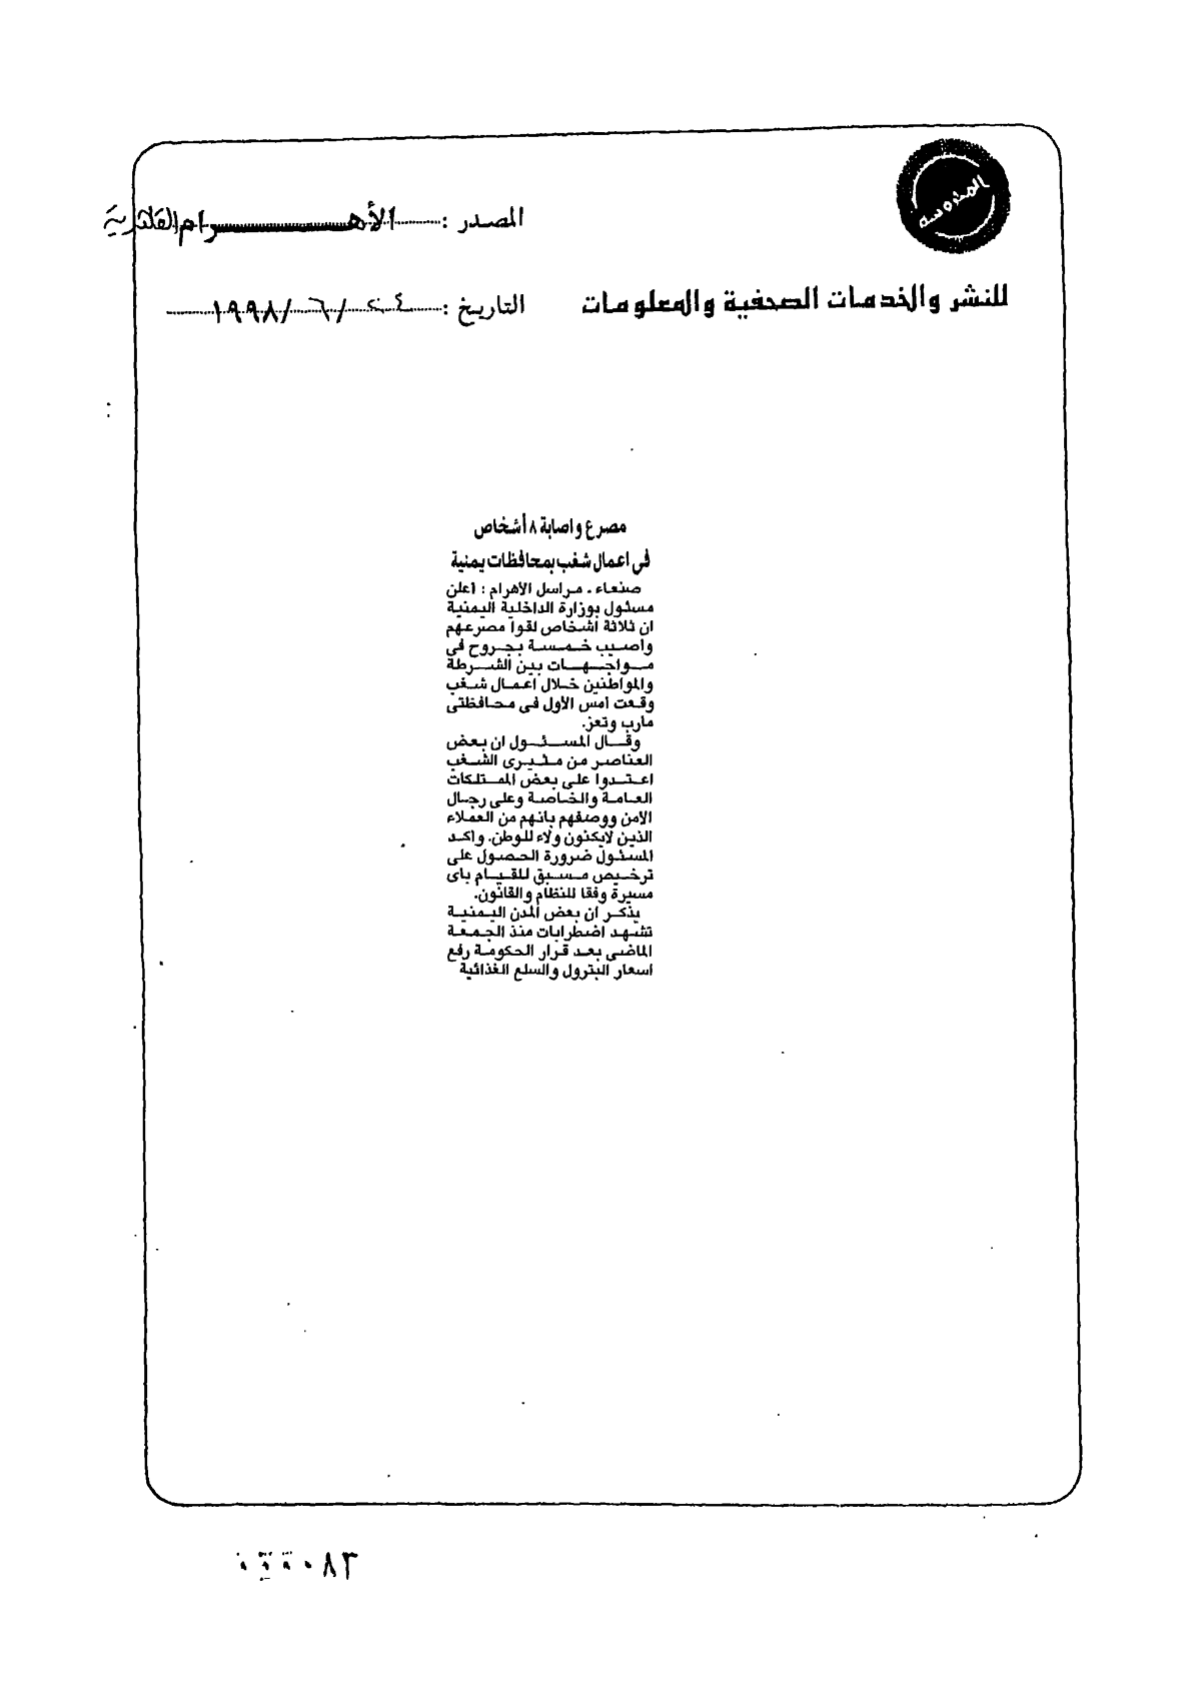 المحروسة
المصدر : الأهرام القاهرية
للنشر والخدمات الصحفية والمعلومات
التاريخ : ٢٤/٦/١٩٩٨
مصرع واصابة ٨ أشخاص
فى اعمال شغب بمحافظات يمنية
صنعاء ـ مراسل الأهرام : أعلن
مسئول بوزارة الداخلية اليمنية
ان ثلاثة أشخاص لقوا مصرعهم
واصيب خمسة بجروح فى
مواجهات بين الشرطة
والمواطنين خلال اعمال شغب
وقعت امس الأول فى محافظتى
مارب وتعز.
وقال المسئول ان بعض
العناصر من مثيرى الشغب
اعتدوا على بعض الممتلكات
العامة والخاصة وعلى رجال
الامن ووصفهم بانهم من العملاء
الذين لايكنون ولاء للوطن. واكد
المسئول ضرورة الحصول على
ترخيص مسبق للقيام باى
مسيرة وفقا للنظام والقانون.
يذكر ان بعض المدن اليمنية
تشهد اضطرابات منذ الجمعة
الماضى بعد قرار الحكومة رفع
اسعار البترول والسلع الغذائية